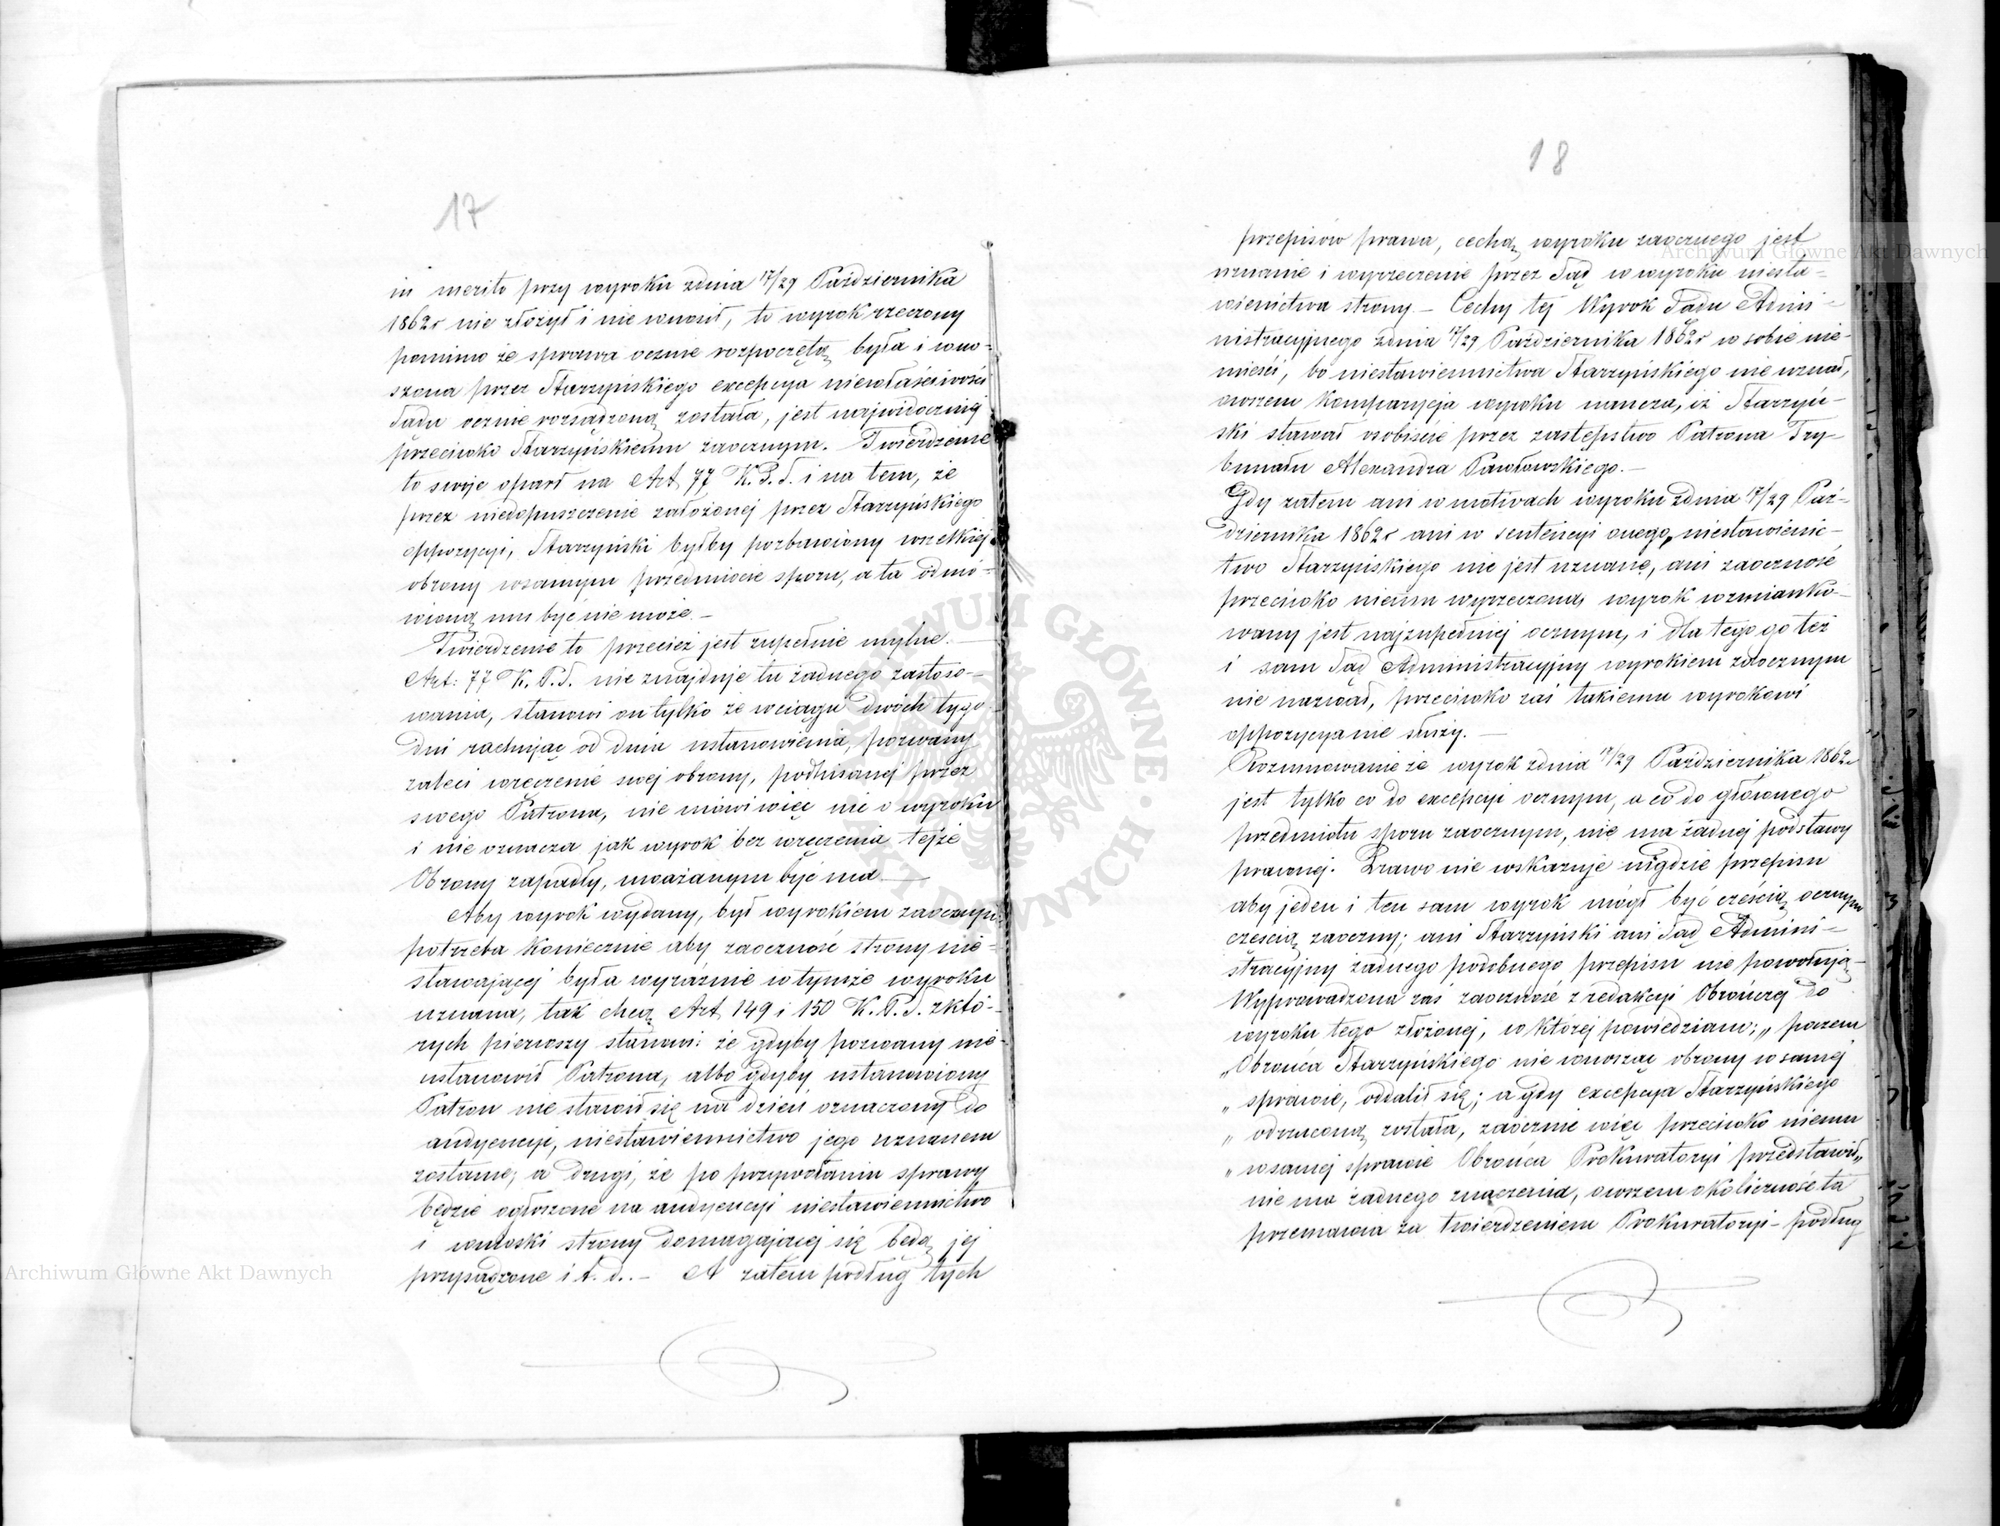 17
in merito przy wyroku zdnia 17/29 Października
1862r nie złożył i nie wnosił, to wyrok rzeczony
pomimo że sprawa ocznie rozpoczętą była i wno-
szona przez Starzyńskiego excepcya niewłaściwości
Sądu ocznie rozsądzoną została, jest najwidoczniej
przeciwko Starzyńskiemu zaocznym. Twierdzenie
to swoje oparł na Art 77 K.P.S. i na tem, że
przez niedopuszczenie założonej przez Starzyńskiego
oppozycyi, Starzyński byłby pozbawiony wszelkiej
obrony wsamym przedmiocie sporu, a ta odmó-
wioną mu być nie może.-
Twierdzenie to przecież jest zupełnie mylne.-
Art: 77 K.P.S. nie znajduje tu żadnego zastoso-
wania, stanowi on tylko że wciągu dwóch tygo-
dni rachując od dnia ustanowienia, pozwany
zaleci wręczenie swej obrony, podpisanej przez
swego Patrona, nie mówi więc nic o wyroku
i nie oznacza jak wyrok bez wręczenia tejże
Obrony zapadły, uważanym być ma —
Aby wyrok wydany, był wyrokiem zaocznym
potrzeba koniecznie aby zaoczność strony nie-
stawającej była wyraźnie w tymże wyroku
uznana, tak chcą Art 149 i 150 K.P.S. zktó-
rych pierwszy stanowi: że gdyby pozwany nie-
ustanowił Patrona, albo gdyby ustanowiony
Patron nie stawił się na dzień oznaczony do
audyencyi, niestawiennictwo jego uznanem
zostanie, a drugi, że po przywołaniu sprawy
będzie ogłoszone na audyencyi niestawiennictwo
i wnioski strony domagającej się będą jej
przysądzone i t. d..- A zatem podług tych
18
przepisów prawa, cechą wyroku zaocznego jest
uznanie i wyrzeczenie przez Sąd w wyroku niesta-
wienictwa strony - Cechy tej Wyrok Sądu Admi-
nistracyjnego zdnia 17/29 Października 1862r w sobie nie-
mieści, bo niestawiennictwa Starzyńskiego nie uznał,
owszem komparycja wyroku naucza, iż Starzyń-
ski stawał osobiście przez zastępstwo Patrona Try-
bunału Alexandra Pawłowskiego.-
Gdy zatem ani w motivach wyroku zdnia 17/29 Paź-
dziernika 1862r ani w sentencyi onego, niestawienic-
two Starzyńskiego nie jest uznane, ani zaoczność
przeciwko niemu wyrzeczoną wyrok wzmianko-
wany jest najzupełniej ocznym, i dla tego go też
i sam Sąd Administracyjny wyrokiem zaocznym
nie nazwał, przeciwko zaś takiemu wyrokowi
oppozycya nie służy.-
Rozumowanie że wyrok zdnia 17/29 Października 1862r
jest tylko co do excepcyi ocznym, a co do głównego
przedmiotu sporu zaocznym, nie ma żadnej podstawy
prawnej. Prawo nie wskazuje nigdzie przepisu
aby jeden i ten sam wyrok mógł być cześcią ocznym
częścią zaoczny; ani Starzyński ani Sąd Admini-
stracyjny żadnego podobnego przepisu nie powołują-
Wyprowadzona zaś zaoczność z redakcyi Obrończej do
wyroku tego złożonej, w której powiedziano; „poczem
„Obrońca Starzyńskiego nie wnosząc obrony wsamej
„sprawie, oddalił się; a gdy excepcya Starzyńskiego
„odrzuconą została, zaocznie więc przeciwko niemu
„wsamej sprawie Obrońca Prokuratoryi przedstawił„
nie ma żadnego znaczenia, owszem okoliczność ta
przemawia za twierdzeniem Prokuratoryi - podług
Archiwum Główne Akt Dawnych
Archiwum Główne Akt Dawnych
ARCHIWUM GŁÓWNE AKT DAWNYCH